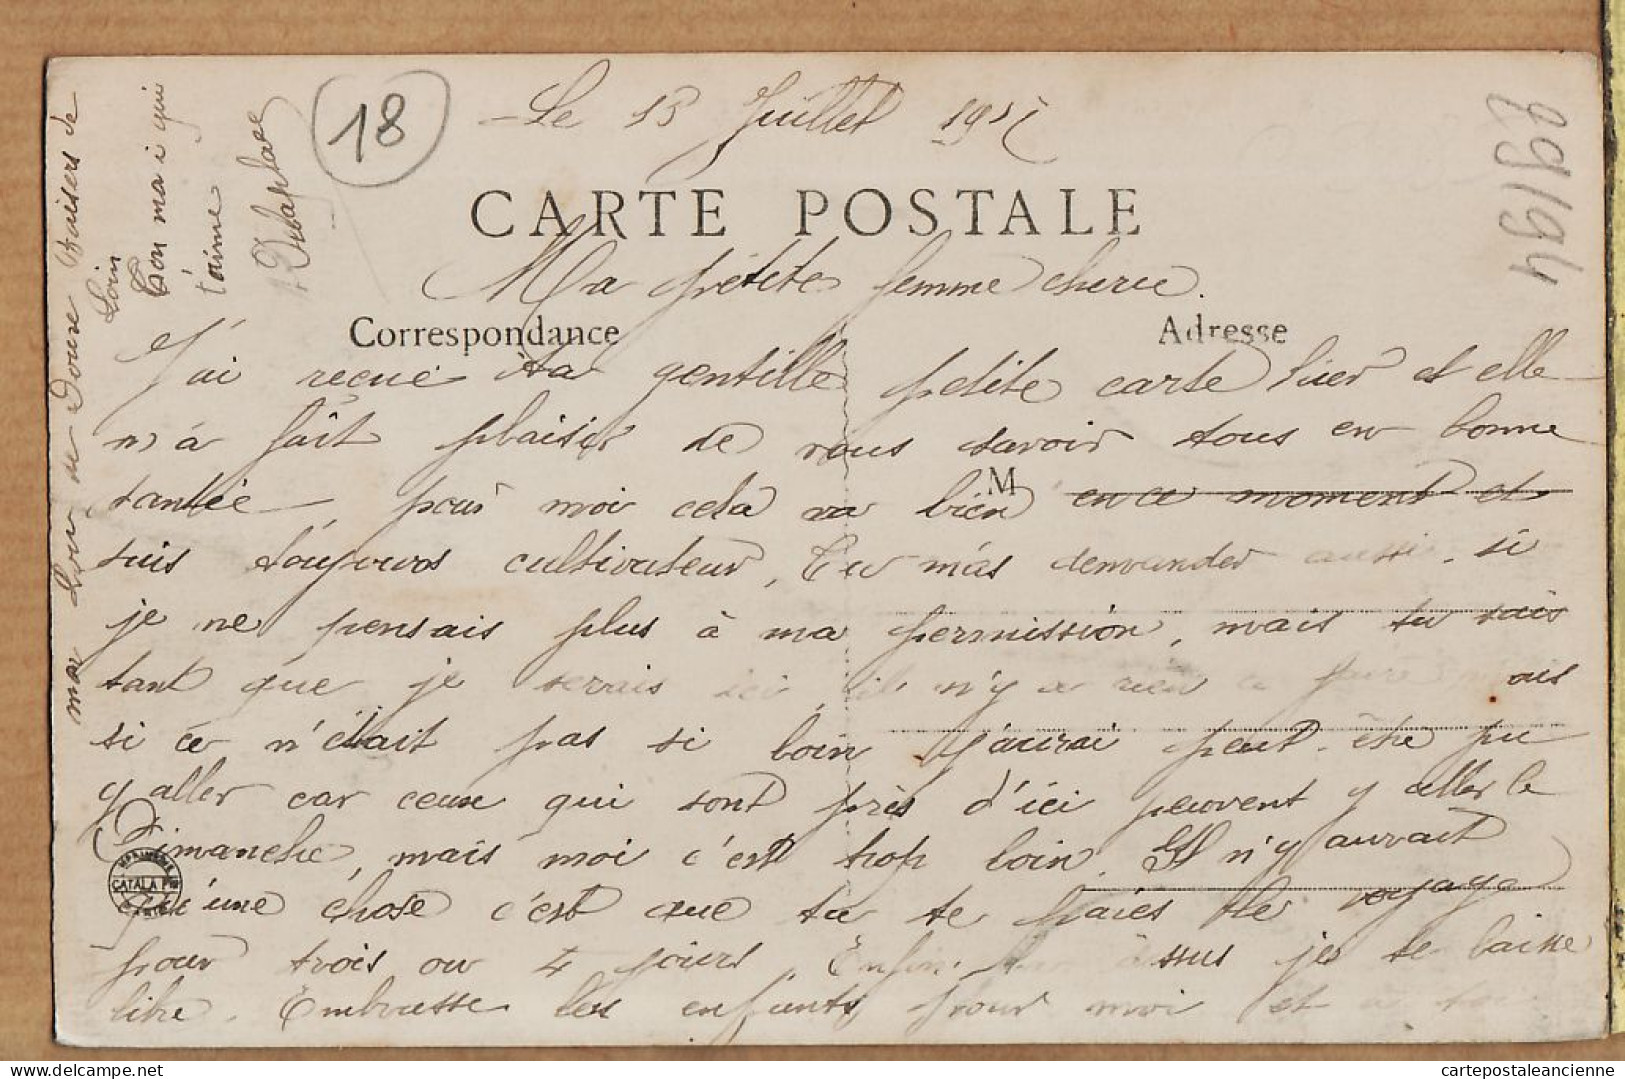 Le 13 Juillet 191
18
29194
CARTE POSTALE
Ma petite femme cherie.
Correspondance
Adresse
J'ai reçue ta gentille petite carte hier et elle
m'a fait plaisir de vous savoir tous en bonne
santée, pour moi cela va bien en ce moment et
M
suis toujours cultivateur, Tu m'as demander aussi si
je ne pensais plus à ma permission, mais tu sais
tant que je serais ici, il n'y a rien a faire mais
si ce n'était pas si loin j'aurai peut-être pu
y aller car ceux qui sont près d'ici peuvent y aller le
Dimanche, mais moi c'est trop loin. Il n'y aurait
qu'une chose c'est que tu te paies le voyage
pour trois ou 4 jours. Enfin dessus je te laisse
libre. Embrasse les enfants pour moi et à toi
mes de Douse Baisers de
Loin
Ton mari qui
t'aime
IMPRIMERIE
CATALA Fres
PARIS
cartepostaleancienne
cartepostaleancienne.com